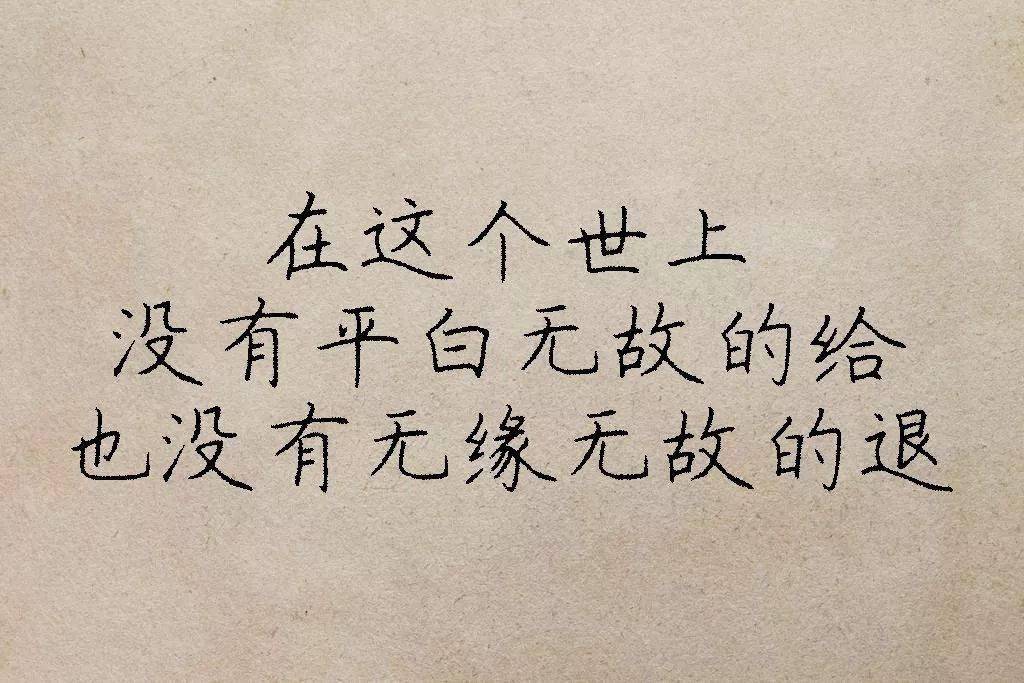 在这个世上
没有平白无故的给
也没有无缘无故的退